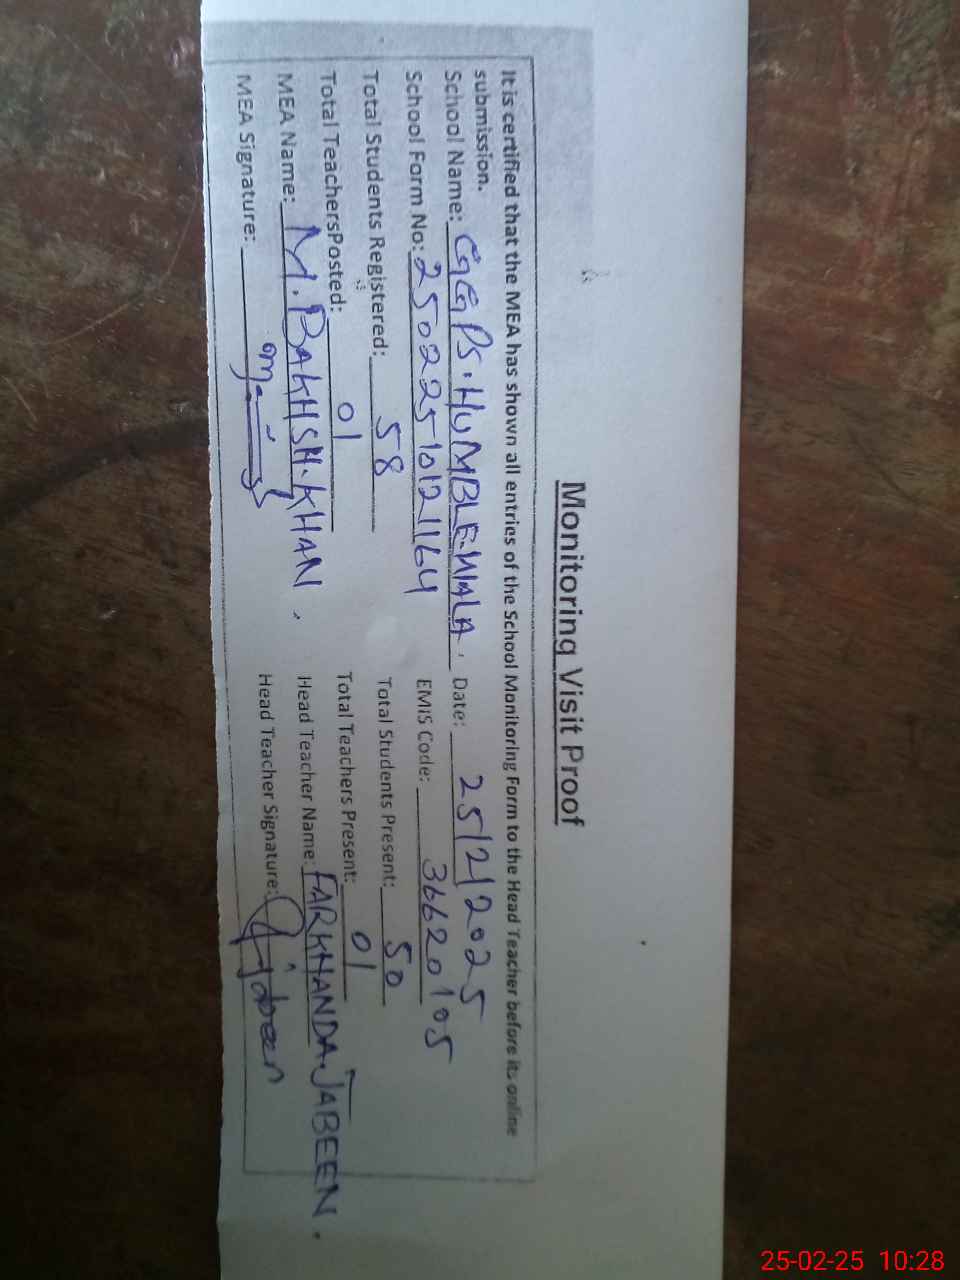 Monitoring Visit Proof
It is certified that the MEA has shown all entries of the School Monitoring Form to the Head Teacher before its online
submission.
School Name: GGPS.HUMBLE.WALA. Date: 25/2/2025
School Form No: 25022510121164 EMIS Code: 36620105
Total Students Registered: 58 Total Students Present: 50
Total TeachersPosted: 01 Total Teachers Present: 01
MEA Name: M.BAKHSH.KHAN. Head Teacher Name: FARKHANDA.JABEEN.
MEA Signature: Head Teacher Signature: Jabeen
25-02-25 10:28